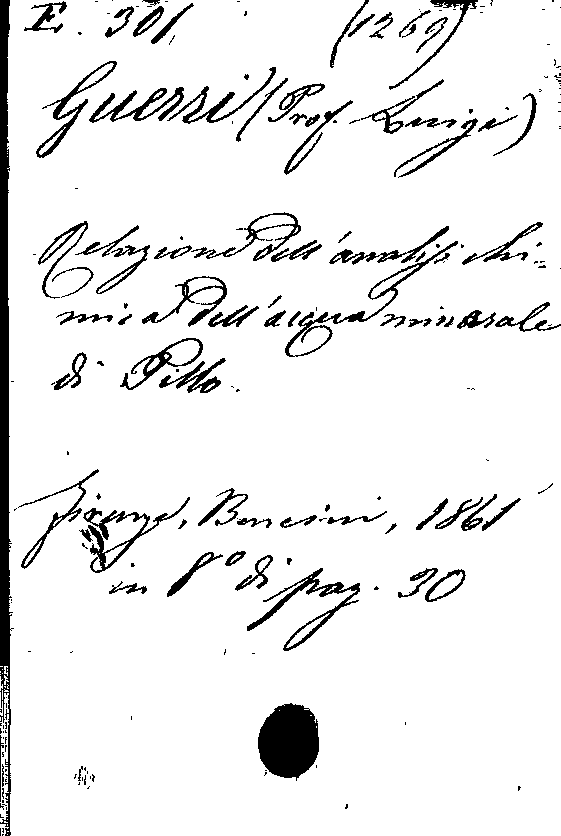 E. 301 (1269)
Guerri (Prof. Luigi)
Relazione dell'analisi chi-
mica dell'acqua minerale
di Pillo.
Firenze, Bencini, 1861
in 8º di pag. 30